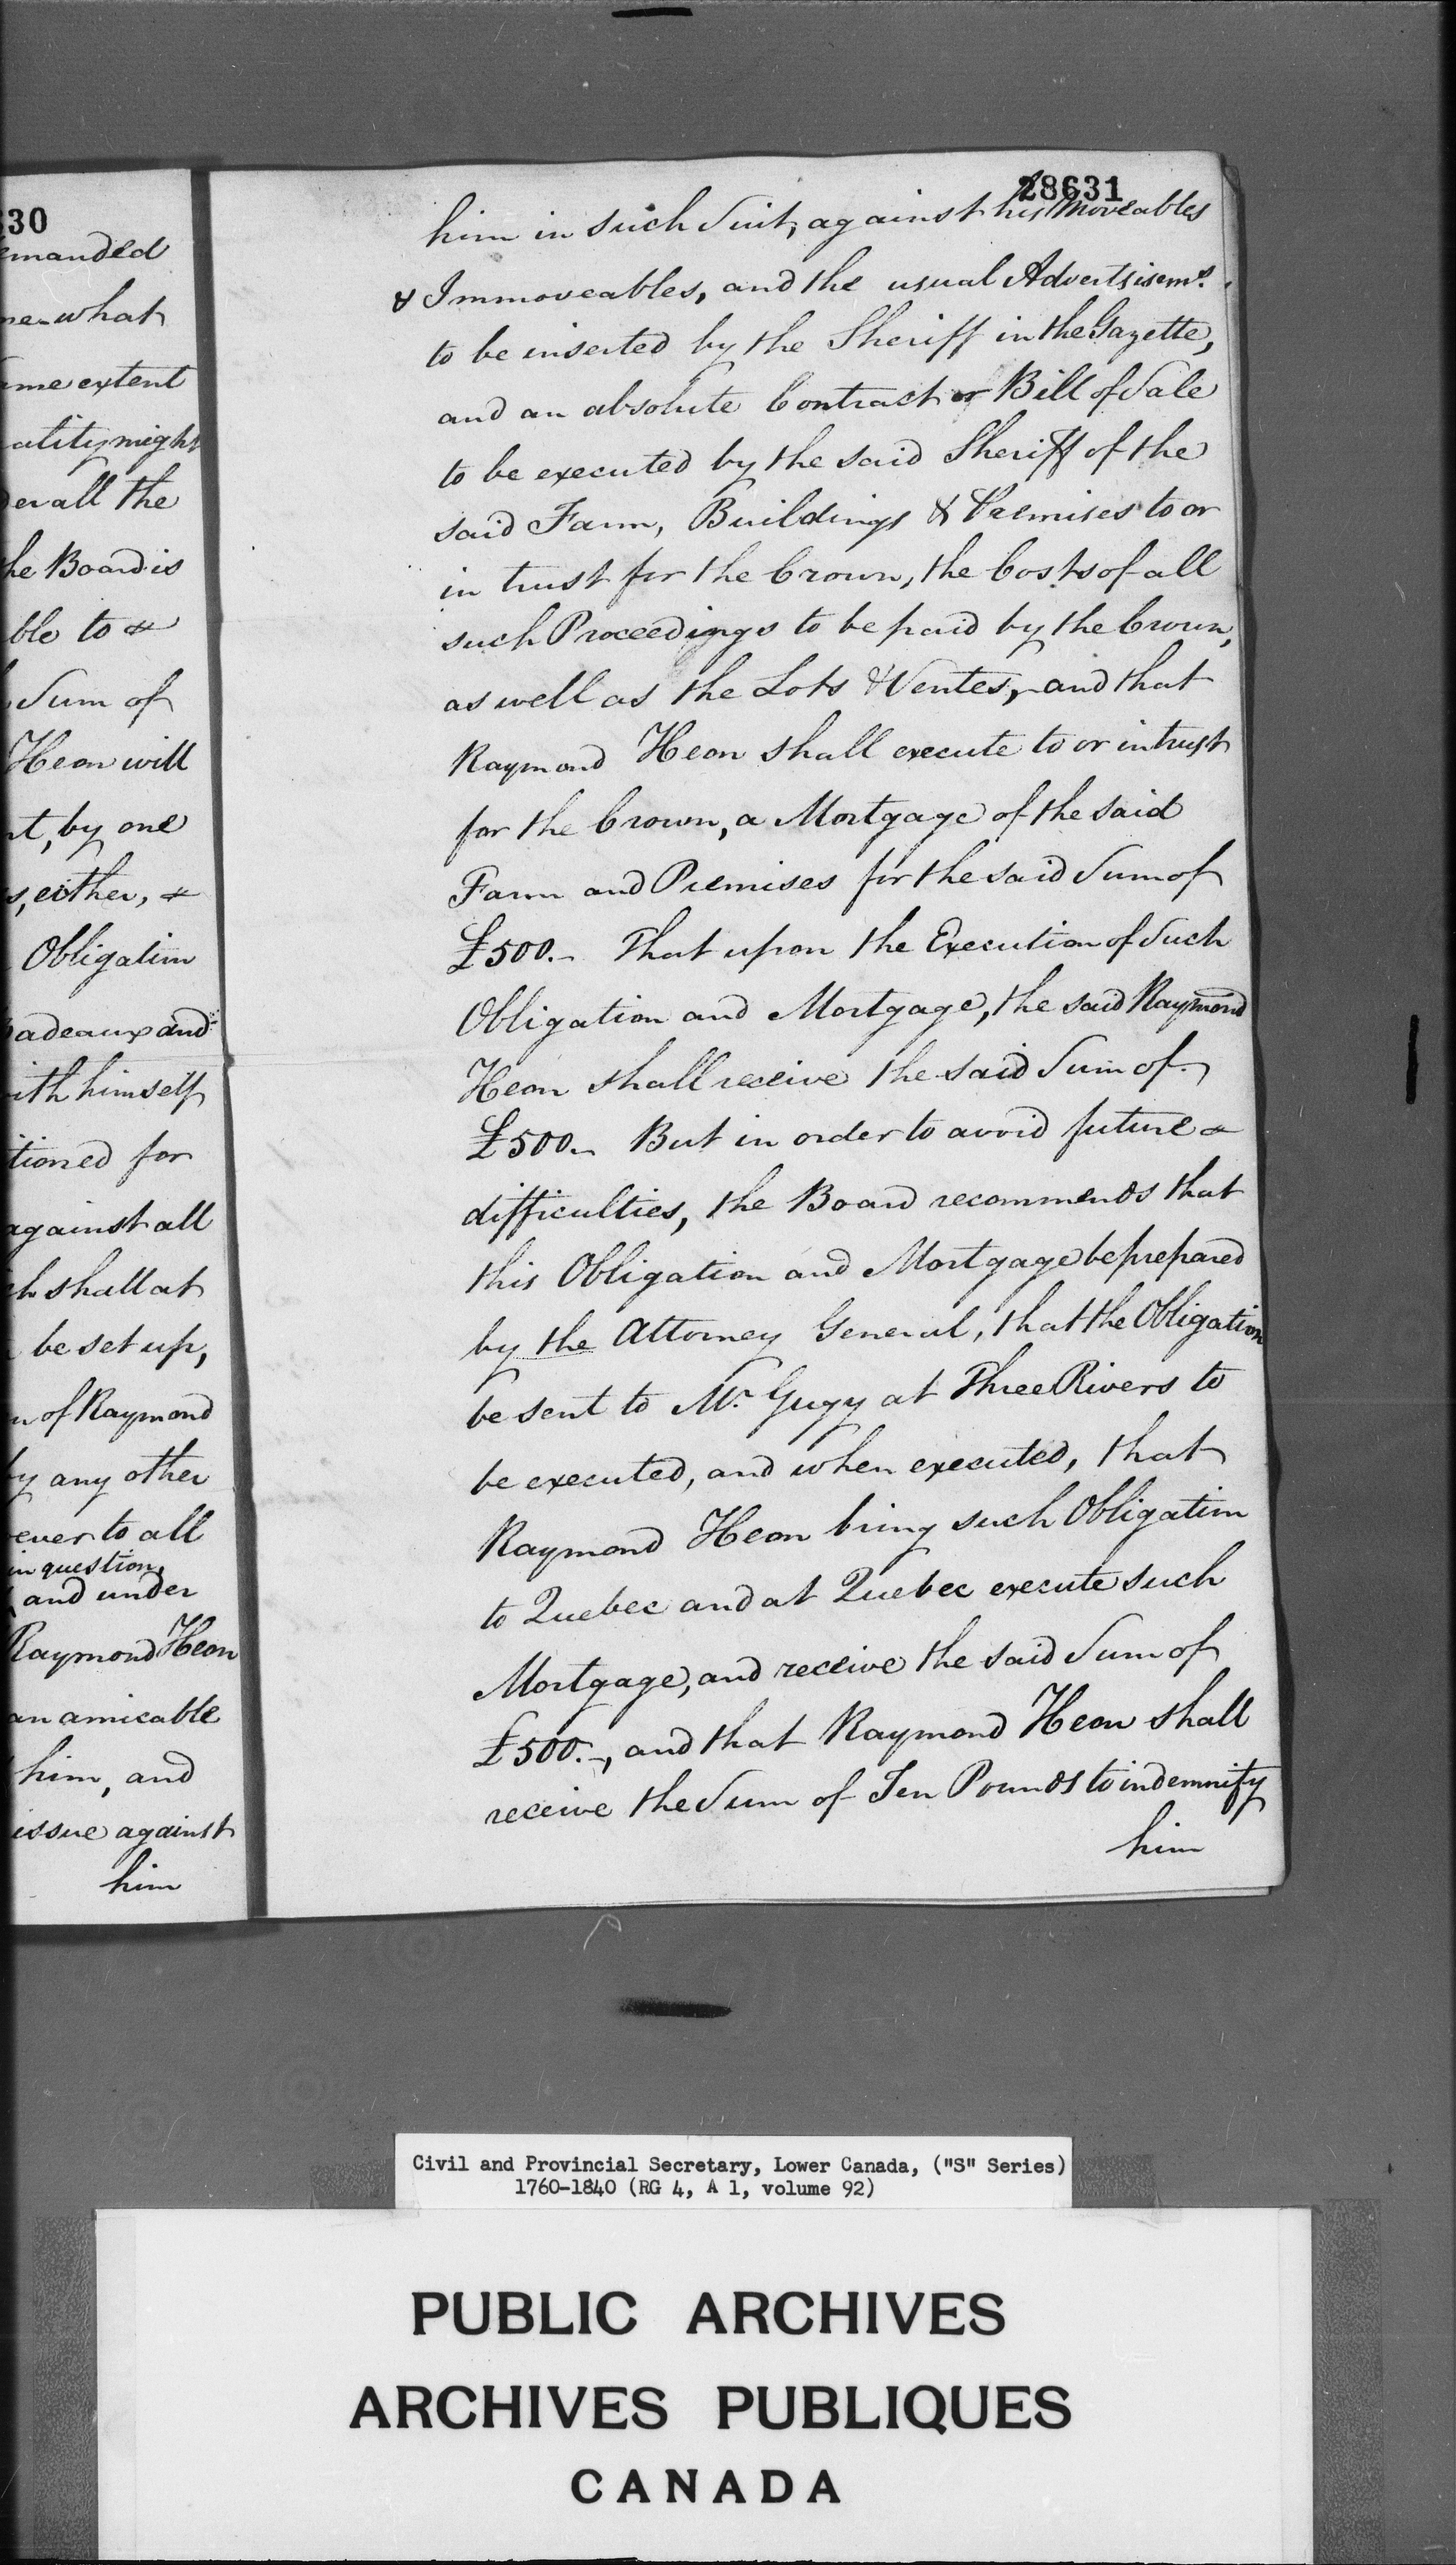 30
emanded
me what
ame extent
ality might
der all the
he Board is
ble to &
Sum of
Heon will
nt, by one
s, either, &
Obligation
badeaux and
with himself
tioned for
against all
ch shall at
be set up,
n of Raymond
by any other
ever to all
in question,
and under
Raymond Heon
an amicable
him, and
issue against
him
28631
him in such Suit, against his Moveables
& Immoveables, and the usual Advertsisemts.
to be inserted by the Sheriff in the Gazette,
and an absolute Contract or Bill of Sale
to be executed by the said Sheriff of the
said Farm, Buildings & Premises to or
in trust for the Crown, the Costs of all
such Proceedings to be paid by the Crown,
as well as the Lots & Ventes, and that
Raymond Heon shall execute to or in trust
for the Crown, a Mortgage of the said
Farm and Premises for the said Sum of
£500.- That upon the Execution of Such
Obligation and Mortgage, the said Raymond
Heon shall receive the said Sum of
£500.- But in order to avoid future
difficulties, the Board recommends that
this Obligation and Mortgage be prepared
by the Attorney General, that the Obligation
be sent to Mr. Gugy at Three Rivers to
be executed, and when executed, that
Raymond Heon bring such Obligation
to Quebec and at Quebec execute such
Mortgage, and receive the said Sum of
£500.-, and that Raymond Heon shall
receive the Sum of Ten Pounds to indemnify
him
Civil and Provincial Secretary, Lower Canada, ("S" Series)
1760-1840 (RG 4, A 1, volume 92)
PUBLIC ARCHIVES
ARCHIVES PUBLIQUES
CANADA